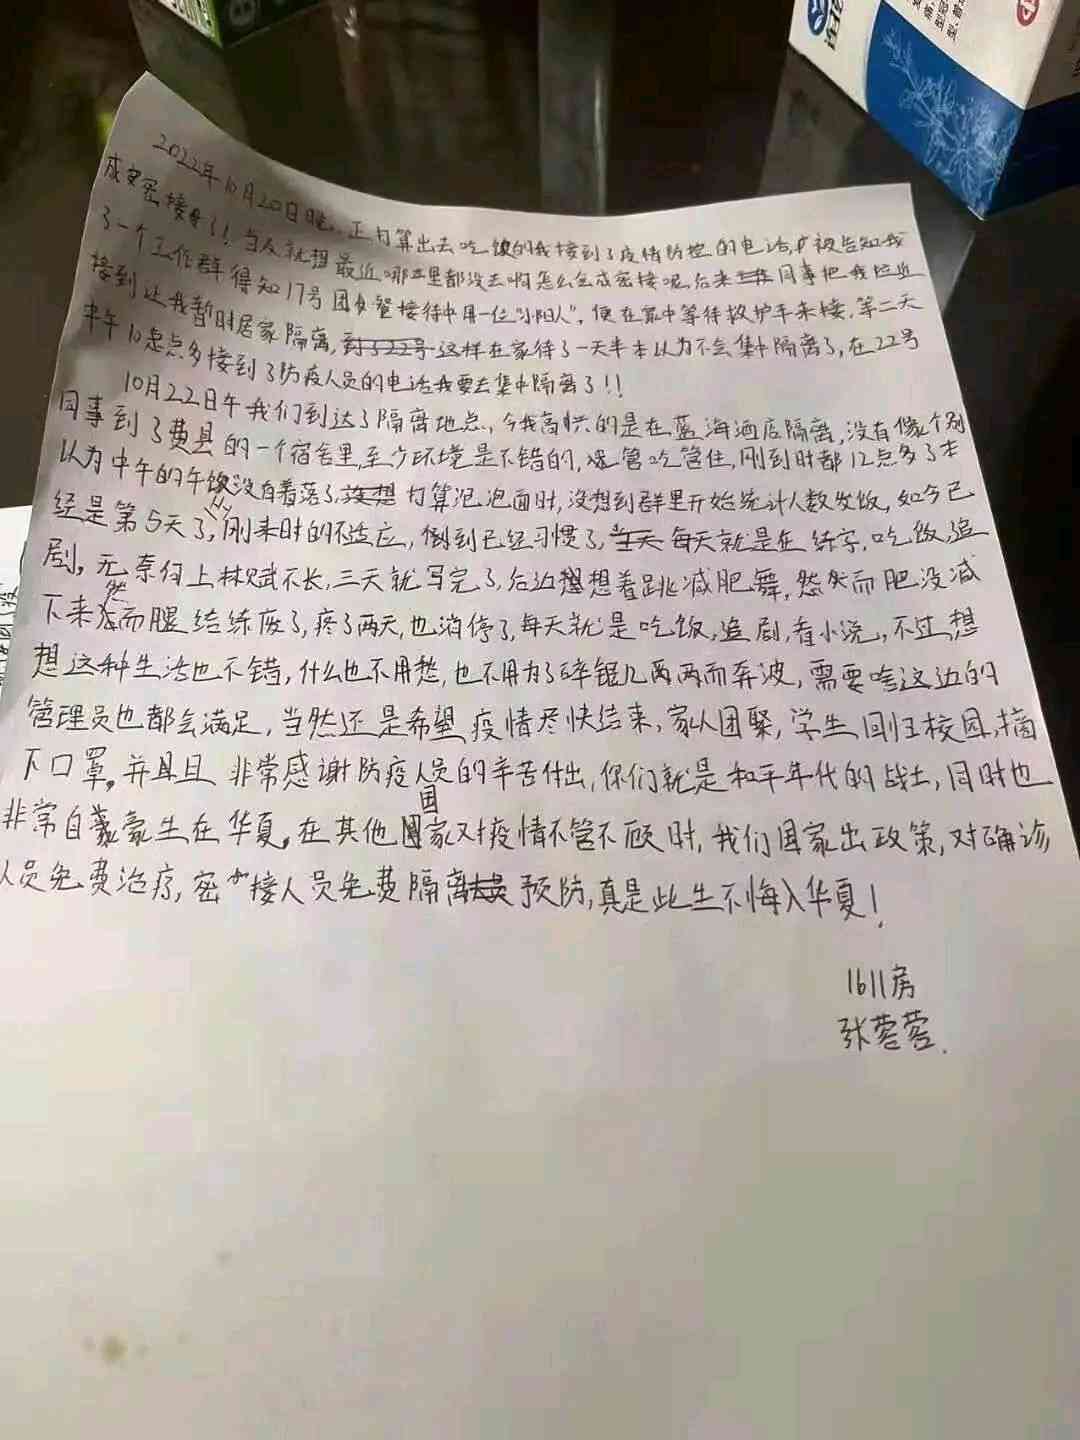 2022年10月20日晚,正打算出去吃饭的我接到了疫情防控的电话,被告知我
成密接了!当人就想最近哪里都没去啊怎么会成密接呢,后来同事把我拉近
了一个工作群得知17号团餐接待中用一位"小阳人",便在家中等待救护车来接,第二天
接到让我暂时居家隔离,这样在家待了一天半本以为不会集中隔离了,在22号
中午10点多接到了防疫人员的电话我要去集中隔离了!!
10月22日午我们到达了隔离地点,令我高兴的是在蓝海酒店隔离,没有像个别
同事到了费县的一个宿舍里,至少环境是不错的,还管吃管住,刚到时都12点多了本
以为中午的午饭没有着落了,打算泡泡面时,没想到群里开始统计人数发饭,如今已
经是第5天了,从刚来时的不适应,倒到已经习惯了,每天就是在练字,吃饭,追
剧,无奈何上林赋不长,三天就写完了,后边想想着跳减肥舞,然而肥没减
下来然而腿给练废了,疼了两天,也消停了,每天就是吃饭,追剧,看小说,不过想
想这种生活也不错,什么也不用愁,也不用为了碎银几两两而奔波,需要啥这边的
管理员也都会满足,当然还是希望疫情尽快结束,家人团聚,学生回归校园,摘
下口罩。并且且非常感谢防疫人员的辛苦付出,你们就是和平年代的战士,同时也
非常自豪生在华夏。在其他国家对疫情不管不顾时,我们国家出政策,对确诊
人员免费治疗,密接人员免费隔离预防,真是此生不悔入华夏!
1611房
张蓉蓉